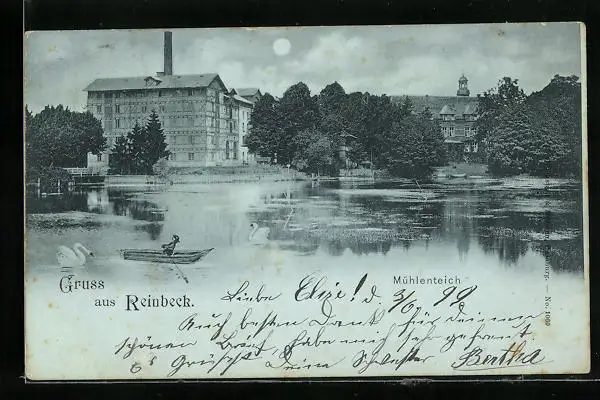 Mühlenteich
Gruss
aus Reinbeck.
Liebe Elise! d. 3/6 99
Auch besten Dank für deinen
schönen Brief, habe mich sehr gefreut.
Es grüsst Deine Schwester Bertha
No. 1060